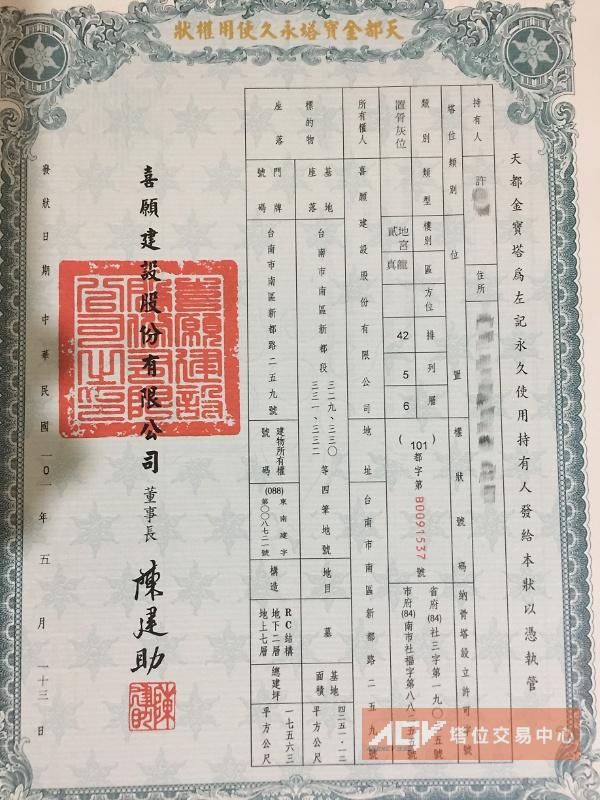 天都金寶塔永久使用權狀
天都金寶塔為左記永久使用持有人發給本狀以憑執管
持有人 許 住所
塔位類別 位置 權狀號碼 納骨塔設立許可 號
類別 類型 樓別 區 方位 排 列 層
置骨灰位 地宮貳 龍真 42 5 6
(101)都字第B0091537號
省府(84)社三字第一九 五號
市府(84)南市社福字第八八二五五號
所有權人 喜願建設股份有限公司 地址 台南市南區新都路二五九號
標的物座落 基地座落 台南市南區新都段 三二九、三三0 三三一、三三二 等四筆地號 地目 墓 基地面積 四二五一.一二 平方公尺
門牌號碼 台南市南區新都路二五九號 建物所有權號碼 (088)東南建字第〇〇八七二一號 構造 RC結構 地下二層 地上七層 總建坪 一七五六三 平方公尺
喜願建設股份有限公司 董事長 陳建助
喜願建設股份有限公司之印
發狀日期 中華民國一0一年五月二十三日
ACV 塔位交易中心